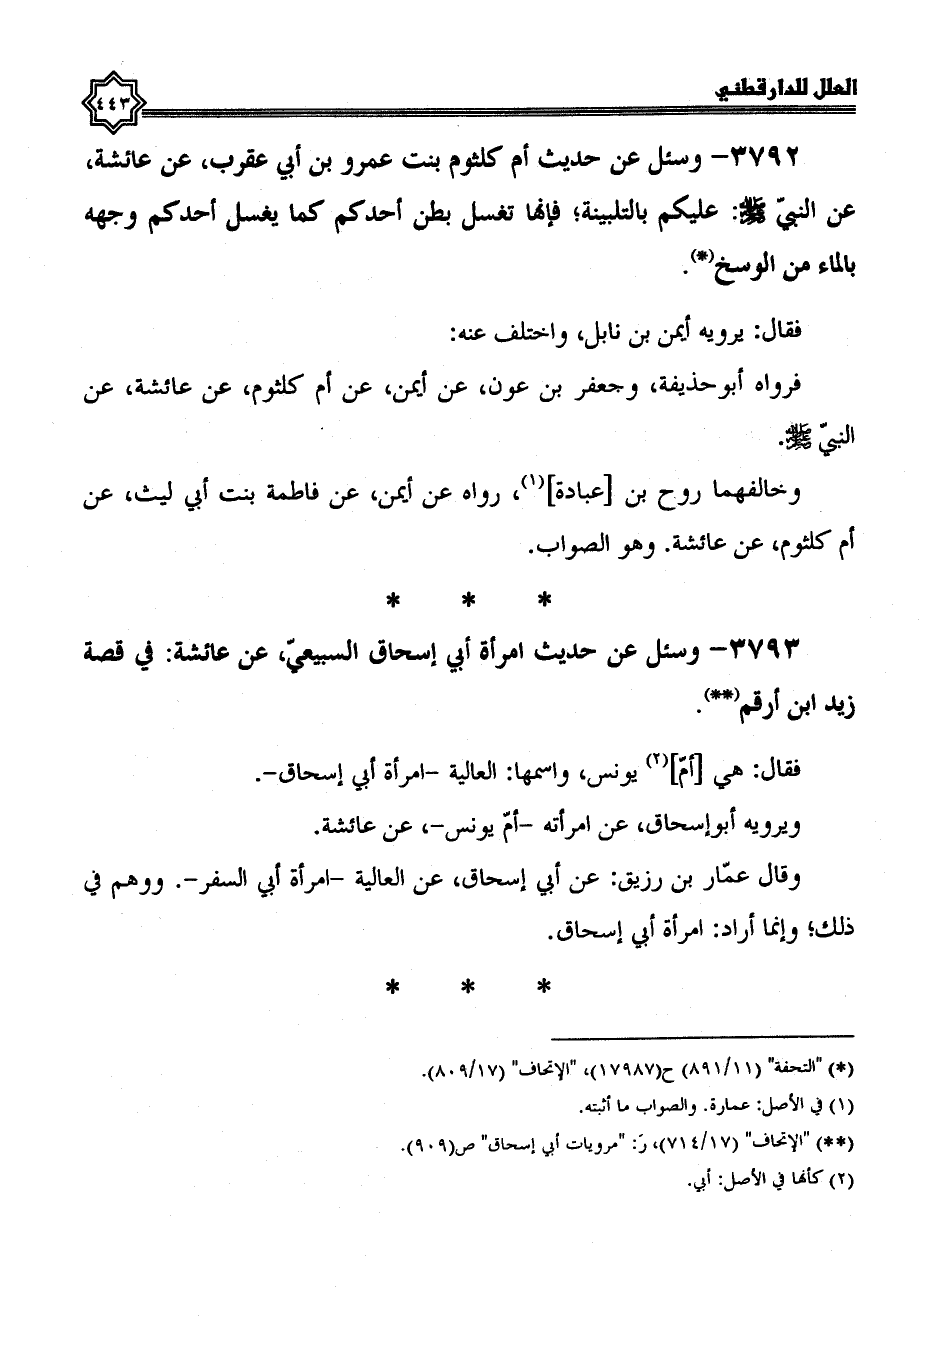 العلل للدارقطني
٤٤٣
٣٧٩٢– وسئل عن حديث أم كلثوم بنت عمرو بن أبي عقرب، عن عائشة،
عن النبيّ ﷺ: عليكم بالتلبينة؛ فإنها تغسل بطن أحدكم كما يغسل أحدكم وجهه
بالماء من الوسخ(*).
فقال: يرويه أيمن بن نابل، واختلف عنه:
فرواه أبوحذيفة، وجعفر بن عون، عن أيمن، عن أم كلثوم، عن عائشة، عن
النبيّ ﷺ.
وخالفهما روح بن [عبادة](١)، رواه عن أيمن، عن فاطمة بنت أبي ليث، عن
أم كلثوم، عن عائشة. وهو الصواب.
* * *
٣٧٩٣– وسئل عن حديث امرأة أبي إسحاق السبيعيّ، عن عائشة: في قصة
زيد ابن أرقم(**).
فقال: هي [أمّ](٢) يونس، واسمها: العالية –امرأة أبي إسحاق–.
ويرويه أبوإسحاق، عن امرأته –أمّ يونس–، عن عائشة.
وقال عمّار بن رزيق: عن أبي إسحاق، عن العالية –امرأة أبي السفر–. ووهم في
ذلك؛ وإنما أراد: امرأة أبي إسحاق.
* * *
(*) "التحفة" (٨٩١/١١) ح(١٧٩٨٧)، "الإتحاف" (٨٠٩/١٧).
(١) في الأصل: عمارة. والصواب ما أثبته.
(**) "الإتحاف" (٧١٤/١٧)، رَ: "مرويات أبي إسحاق" ص(٩٠٩).
(٢) كأنها في الأصل: أبي.